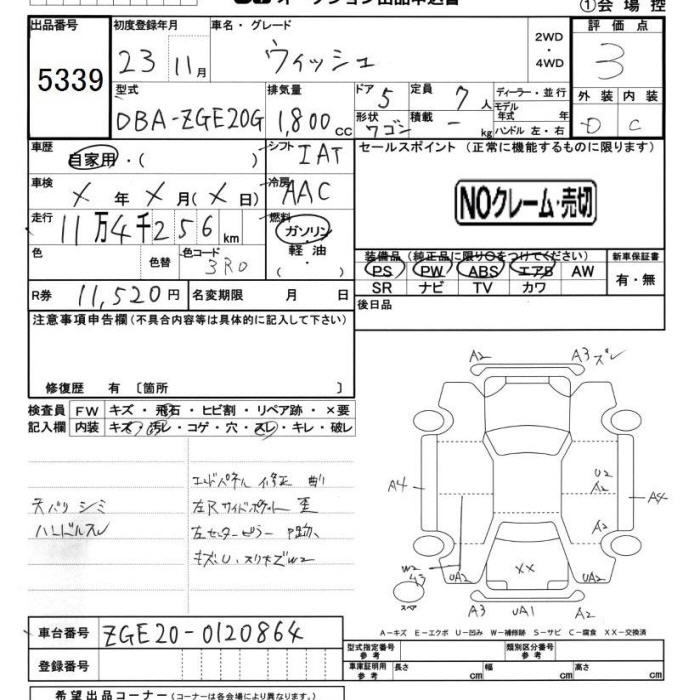 ①会場控
出品番号 初度登録年月 車名・グレード 2WD・4WD 評価点
5339 23 11月 ウィッシュ 3
型式 排気量 ドア 5 定員 7人 ディーラー・並行 外装 内装
DBA-ZGE20G 1,800cc 形状 ワゴン 積載 - kg モデル年式 年 ハンドル 左・右 D C
車歴 自家用・( ) シフト IAT セールスポイント (正常に機能するものに限ります)
車検 X年 X月(X日) 冷房 AAC
NOクレーム・売切
走行 11万4千256km 燃料 ガソリン・軽・油・( )
色 色替 色コード 3R0
装備品 (純正品に限り○をつけてください) 新車保証書
PS PW ABS エアB AW 有・無
SR ナビ TV カワ
R券 11,520円 名変期限 月 日 後日品
注意事項申告欄 (不具合内容等は具体的に記入して下さい)
修復歴 有 [箇所 ]
検査員記入欄 FW キズ・飛石・ヒビ割・リペア跡・×要
内装 キズ・汚レ・コゲ・穴・スレ・キレ・破レ
天バリ シミ
ハンドルスレ
エンドパネル 修正
左Rサイドポケット 歪
左センターピラー
キズ、U、スリキズW2
A2 A3 ズレ
A4 U2 A2 A4
A2
W2 43 UA2 XX UA2
スペア A3 UA1 A2
A-キズ E-エクボ U-凹み W-補修跡 S-サビ C-腐食 XX-交換済
車台番号 ZGE20-0120864
型式指定番号 参考 類別区分番号 参考
登録番号 車庫証明用 参考 長さ cm 幅 cm 高さ cm
希望出品コーナー (コーナーは各会場により異なります。)